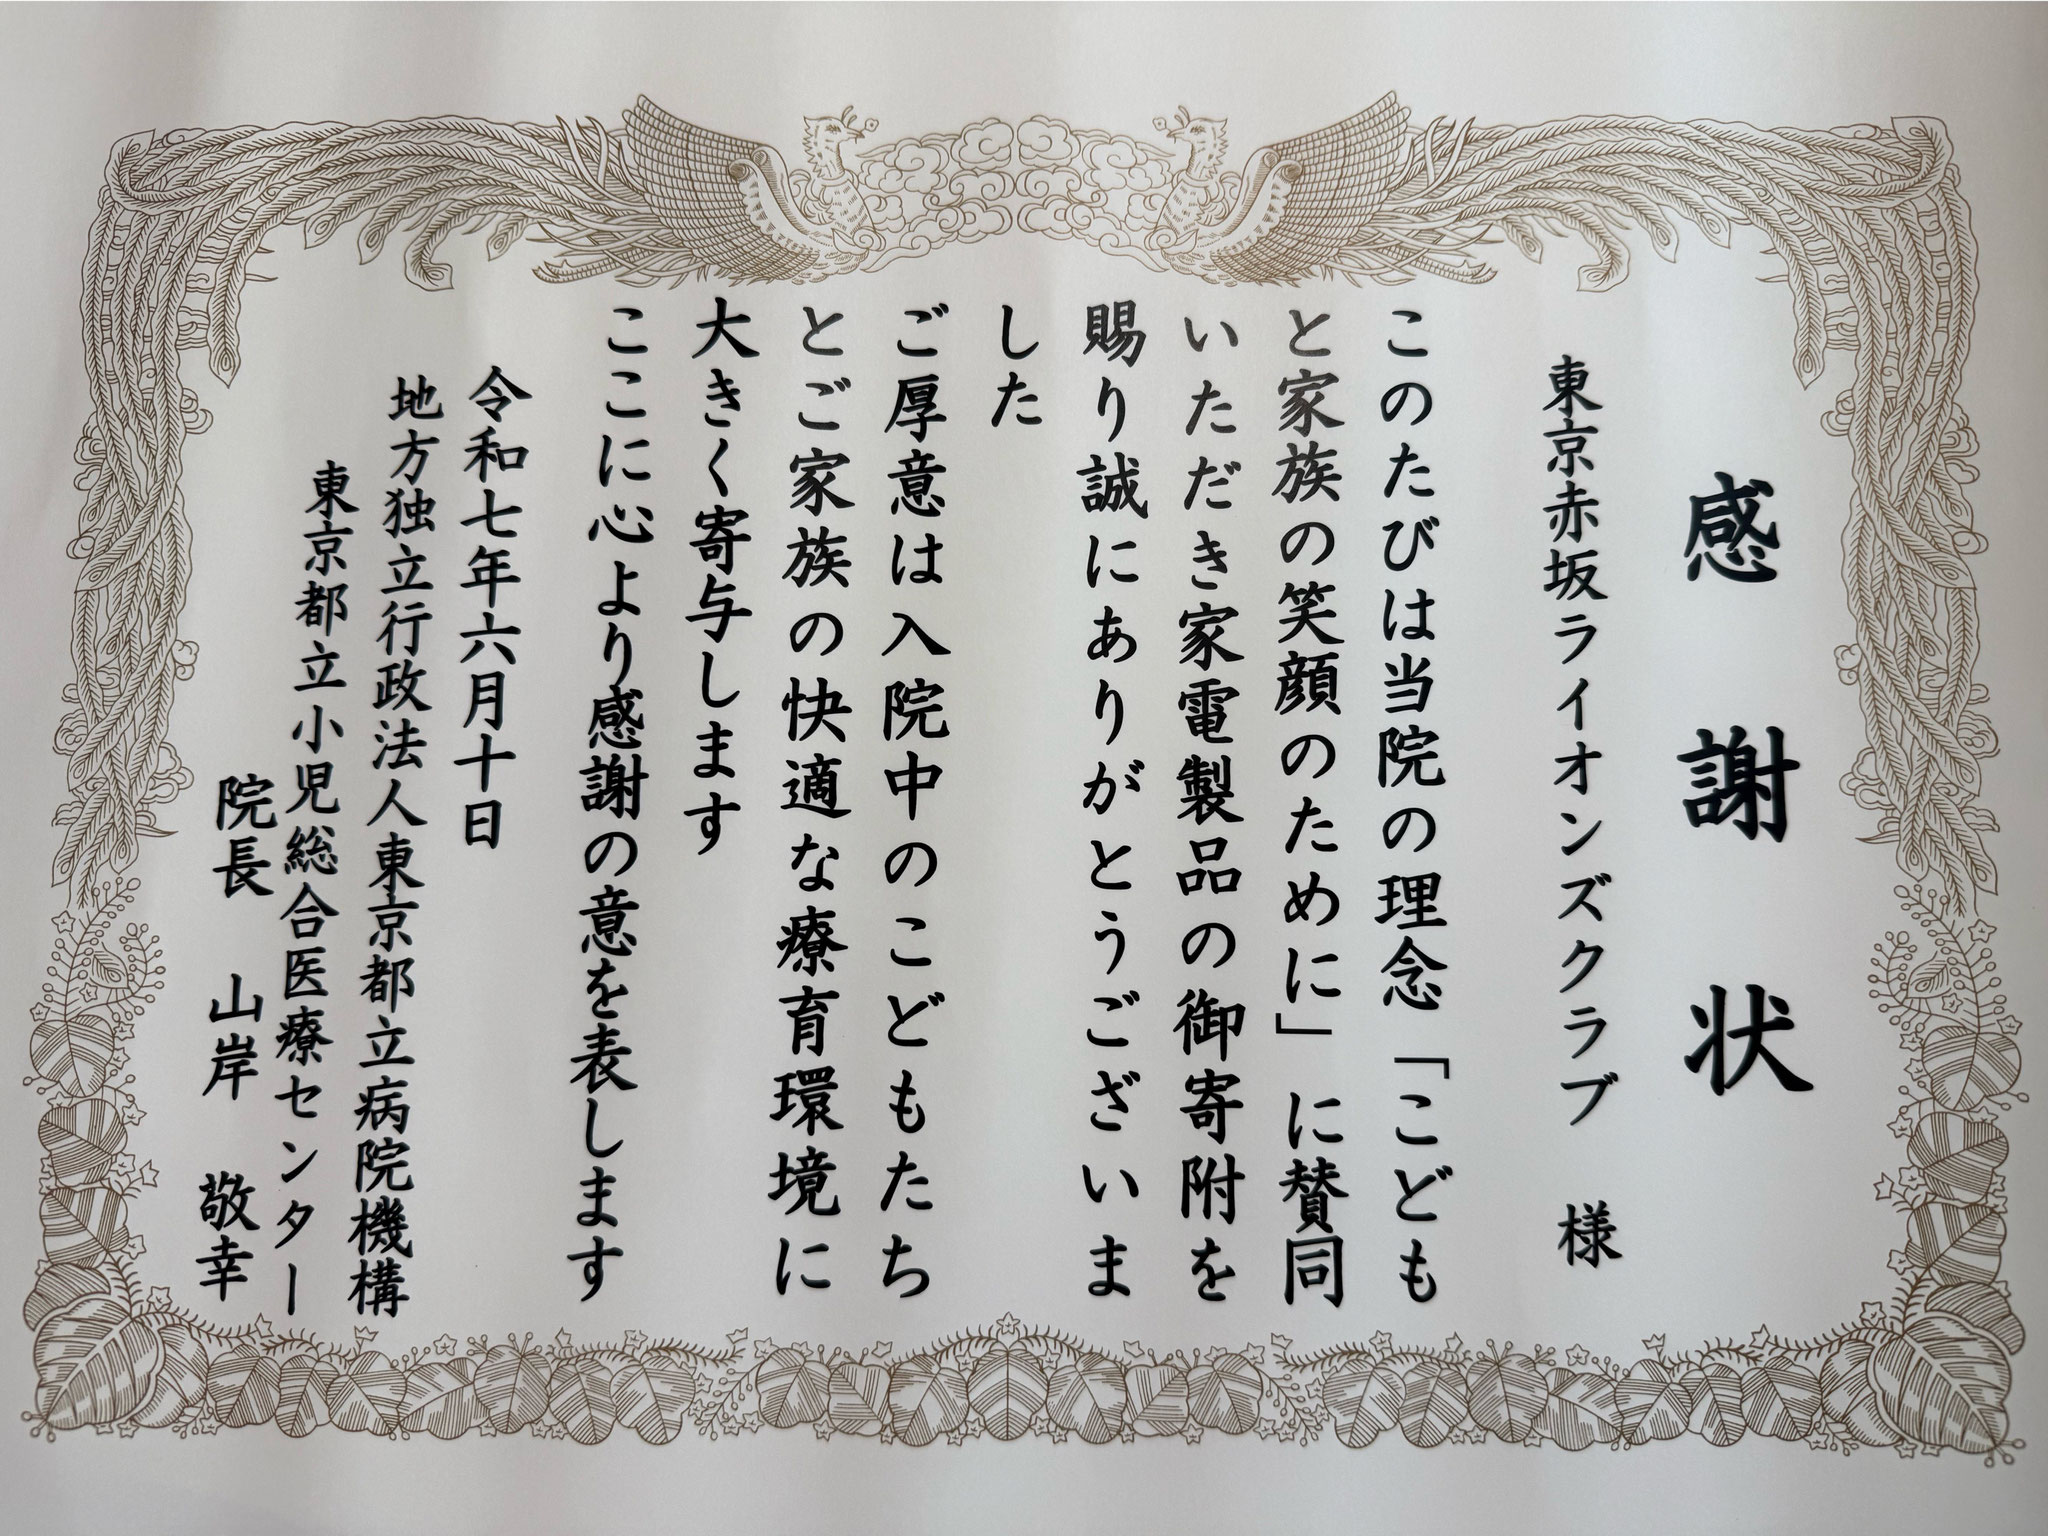 感謝状
東京赤坂ライオンズクラブ 様
このたびは当院の理念「こども
と家族の笑顔のために」に賛同
いただき家電製品の御寄附を
賜り誠にありがとうございま
した
ご厚意は入院中のこどもたち
とご家族の快適な療育環境に
大きく寄与します
ここに心より感謝の意を表します
令和七年六月十日
地方独立行政法人東京都立病院機構
東京都立小児総合医療センター
院長 山岸 敬幸